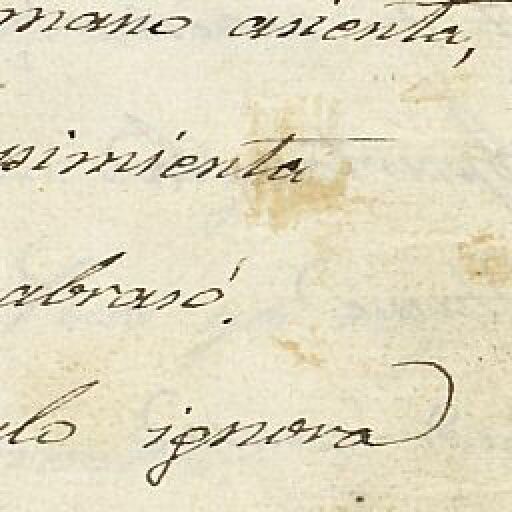 mano asienta,
simienta
abrasó.
ulo ignora